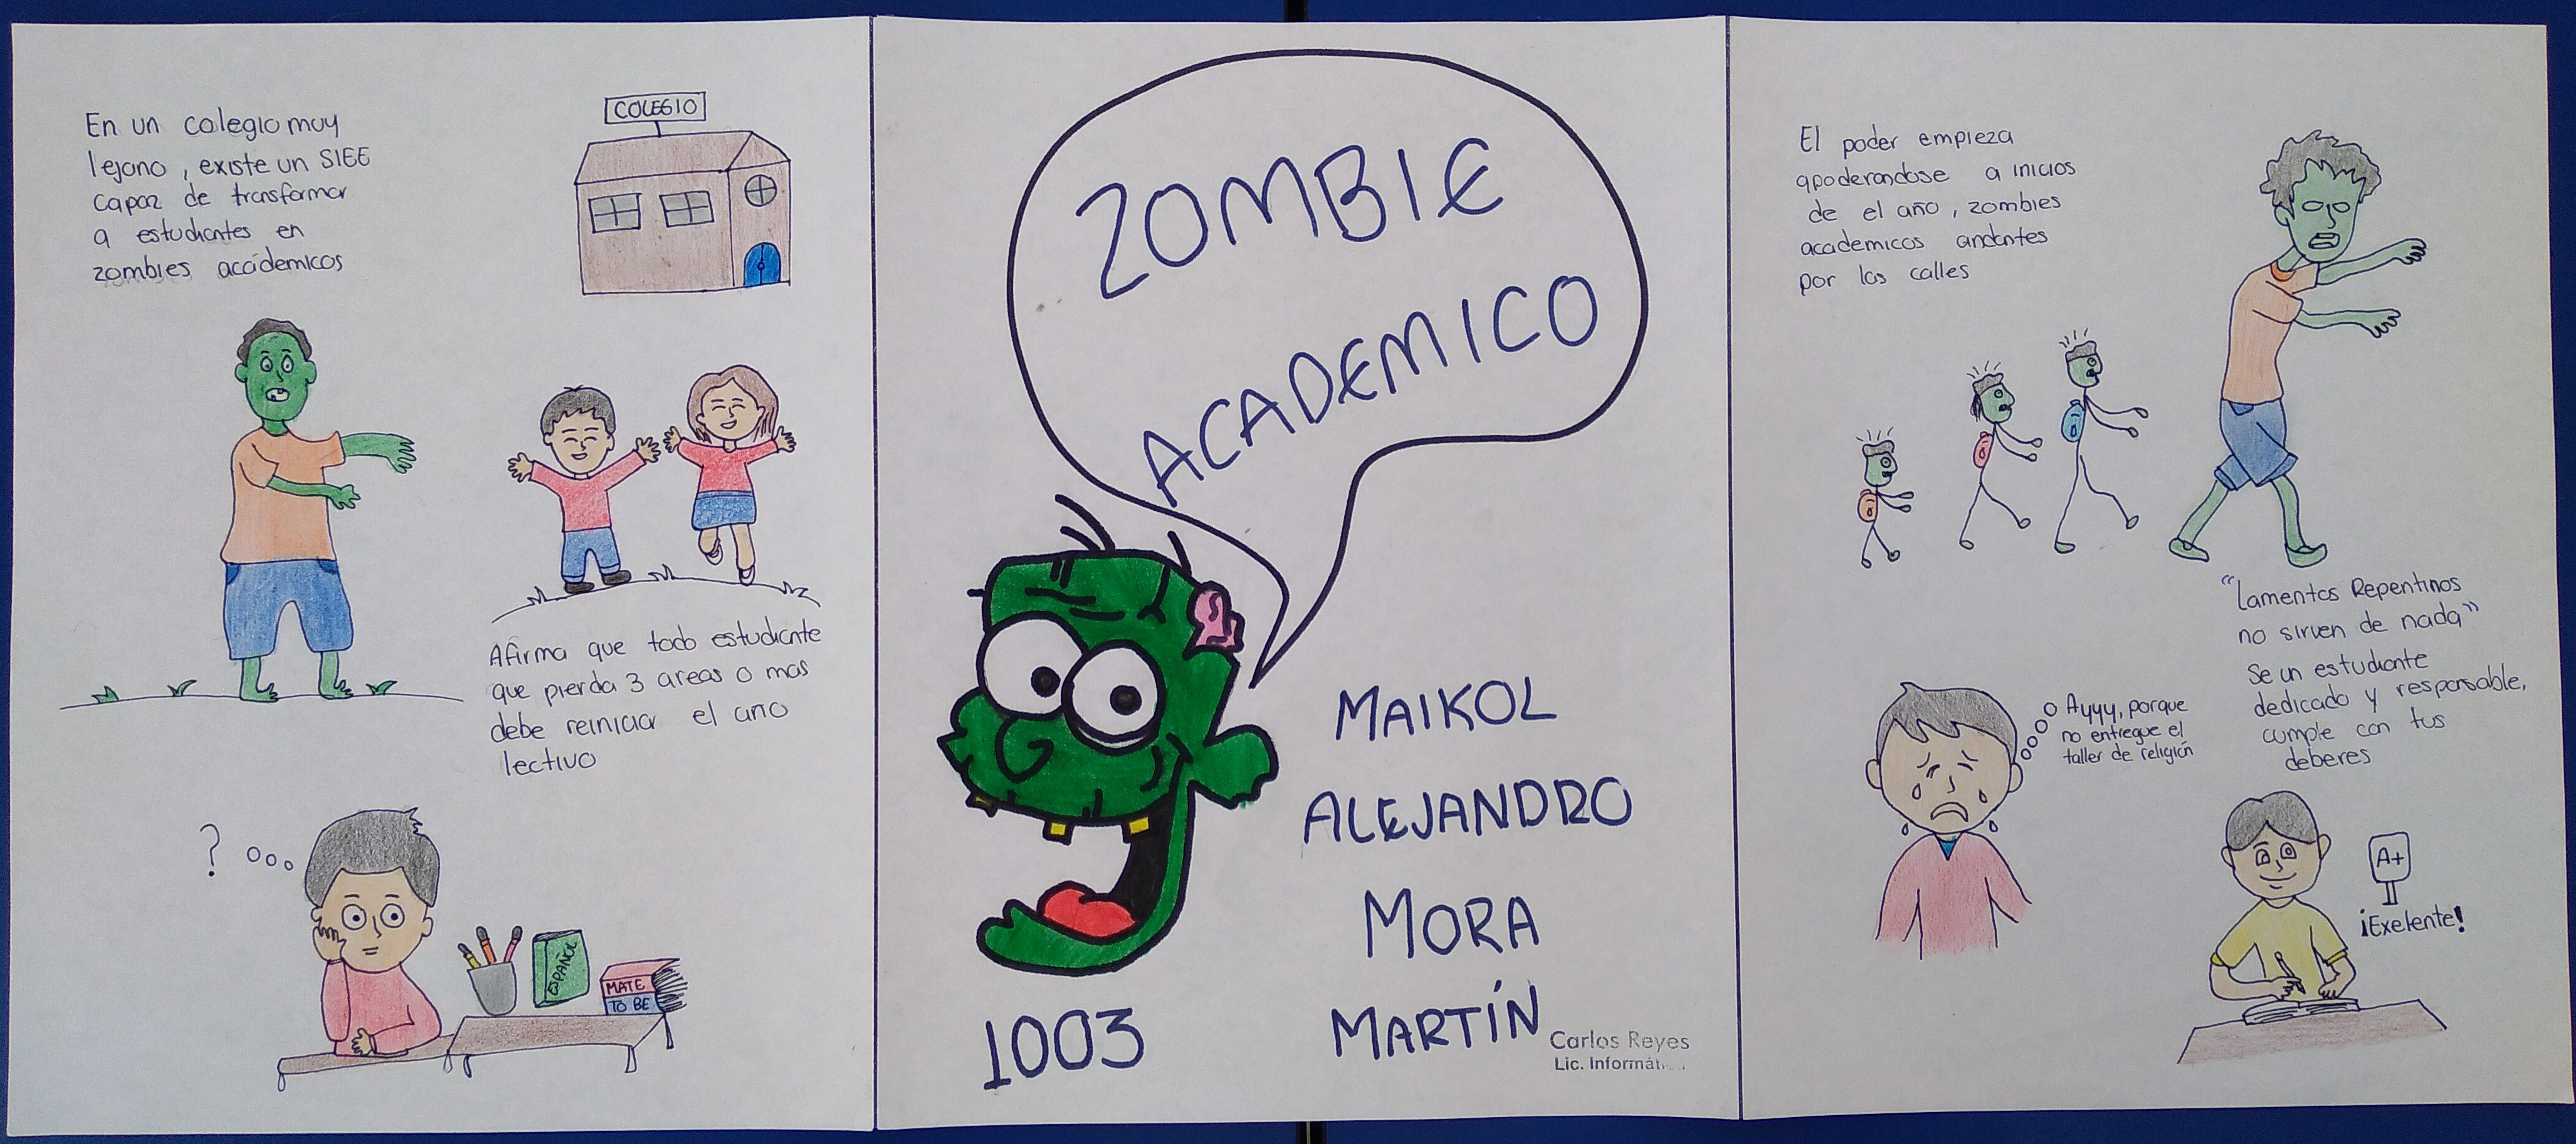 En un colegio muy
lejano, existe un SIEE
capaz de transformar
a estudiantes en
zombies acádemicos
COLEGIO
Afirma que todo estudiante
que pierda 3 areas o mas
debe reiniciar el año
lectivo
?
ESPAÑOL
MATE
TO BE
ZOMBIE
ACADEMICO
MAIKOL
ALEJANDRO
MORA
MARTÍN
1003
Carlos Reyes
Lic. Informát
El poder empieza
apoderandose a inicios
de el año, zombies
academicos andantes
por las calles
"Lamentos Repentinos
no sirven de nada"
Se un estudiante
dedicado y responsable,
cumple con tus
deberes
Ayyy, porque
no entregue el
taller de religión
A+
¡Exelente!